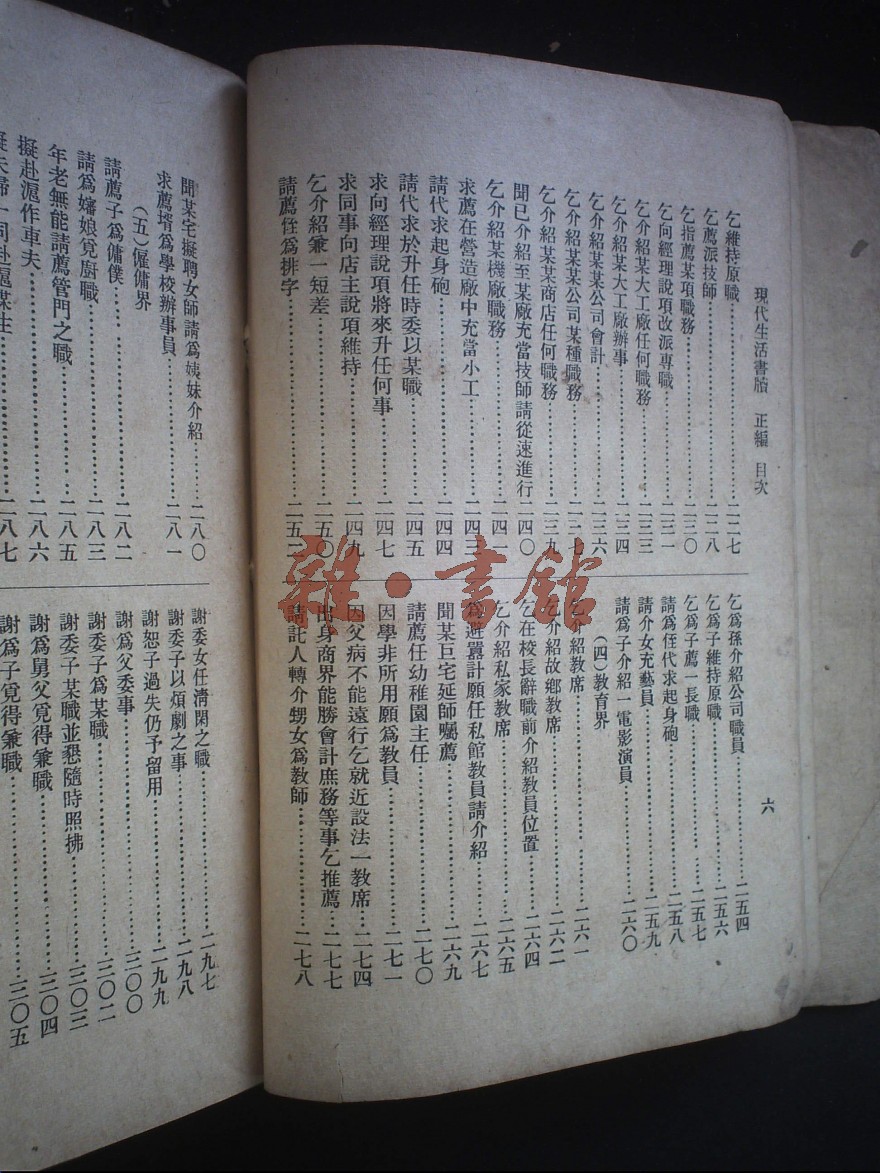 現代生活書牘 正編 目次
六
乞維持原職……二二七
乞薦派技師……二二八
乞指薦某項職務……二三〇
乞向經理說項改派專職……二三一
乞介紹某大工廠任何職務……二三三
乞介紹某大工廠辦事……二三四
乞介紹某某公司會計……二三六
乞介紹某某公司某種職務……二三七
乞介紹某某商店任何職務……二三九
聞已介紹至某廠充當技師請從速進行……二四〇
乞介紹某機廠職務……二四一
求薦在營造廠中充當小工……二四三
請代求起身砲……二四四
請代求於升任時委以某職……二四五
求向經理說項將來升任何事……二四七
求同事向店主說項維持……二四九
乞介紹兼一短差……二五〇
請薦侄爲排字……二五二
乞爲孫介紹公司職員……二五四
乞爲子維持原職……二五六
乞爲子薦一長職……二五七
請爲侄代求起身砲……二五八
請介女充藝員……二五九
請爲子介紹一電影演員……二六〇
(四)教育界
乞介紹教席……二六一
乞介紹故鄉教席……二六二
乞在校長辭職前介紹教員位置……二六四
乞介紹私家教席……二六五
爲避囂計願任私館教員請介紹……二六七
聞某巨宅延師囑薦……二六九
請薦任幼稚園主任……二七〇
因學非所用願爲教員……二七一
因父病不能遠行乞就近設法一教席……二七四
出身商界能勝會計庶務等事乞推薦……二七七
請託人轉介甥女爲教師……二七八
聞某宅擬聘女師請爲姨妹介紹……二八〇
求薦壻爲學校辦事員……二八一
(五)傭僱界
請薦子爲傭僕……二八二
請爲嬸娘覓廚職……二八三
年老無能請薦管門之職……二八五
擬赴滬作車夫……二八六
擬夫婦一同赴滬謀生……二八七
謝委女任清閑之職……二九七
謝委子以煩劇之事……二九八
謝恕子過失仍予留用……二九九
謝爲父委事……三〇〇
謝委子爲某職……三〇二
謝委子某職並懇隨時照拂……三〇三
謝爲舅父覓得兼職……三〇四
謝爲子覓得兼職……三〇五
雜·書館